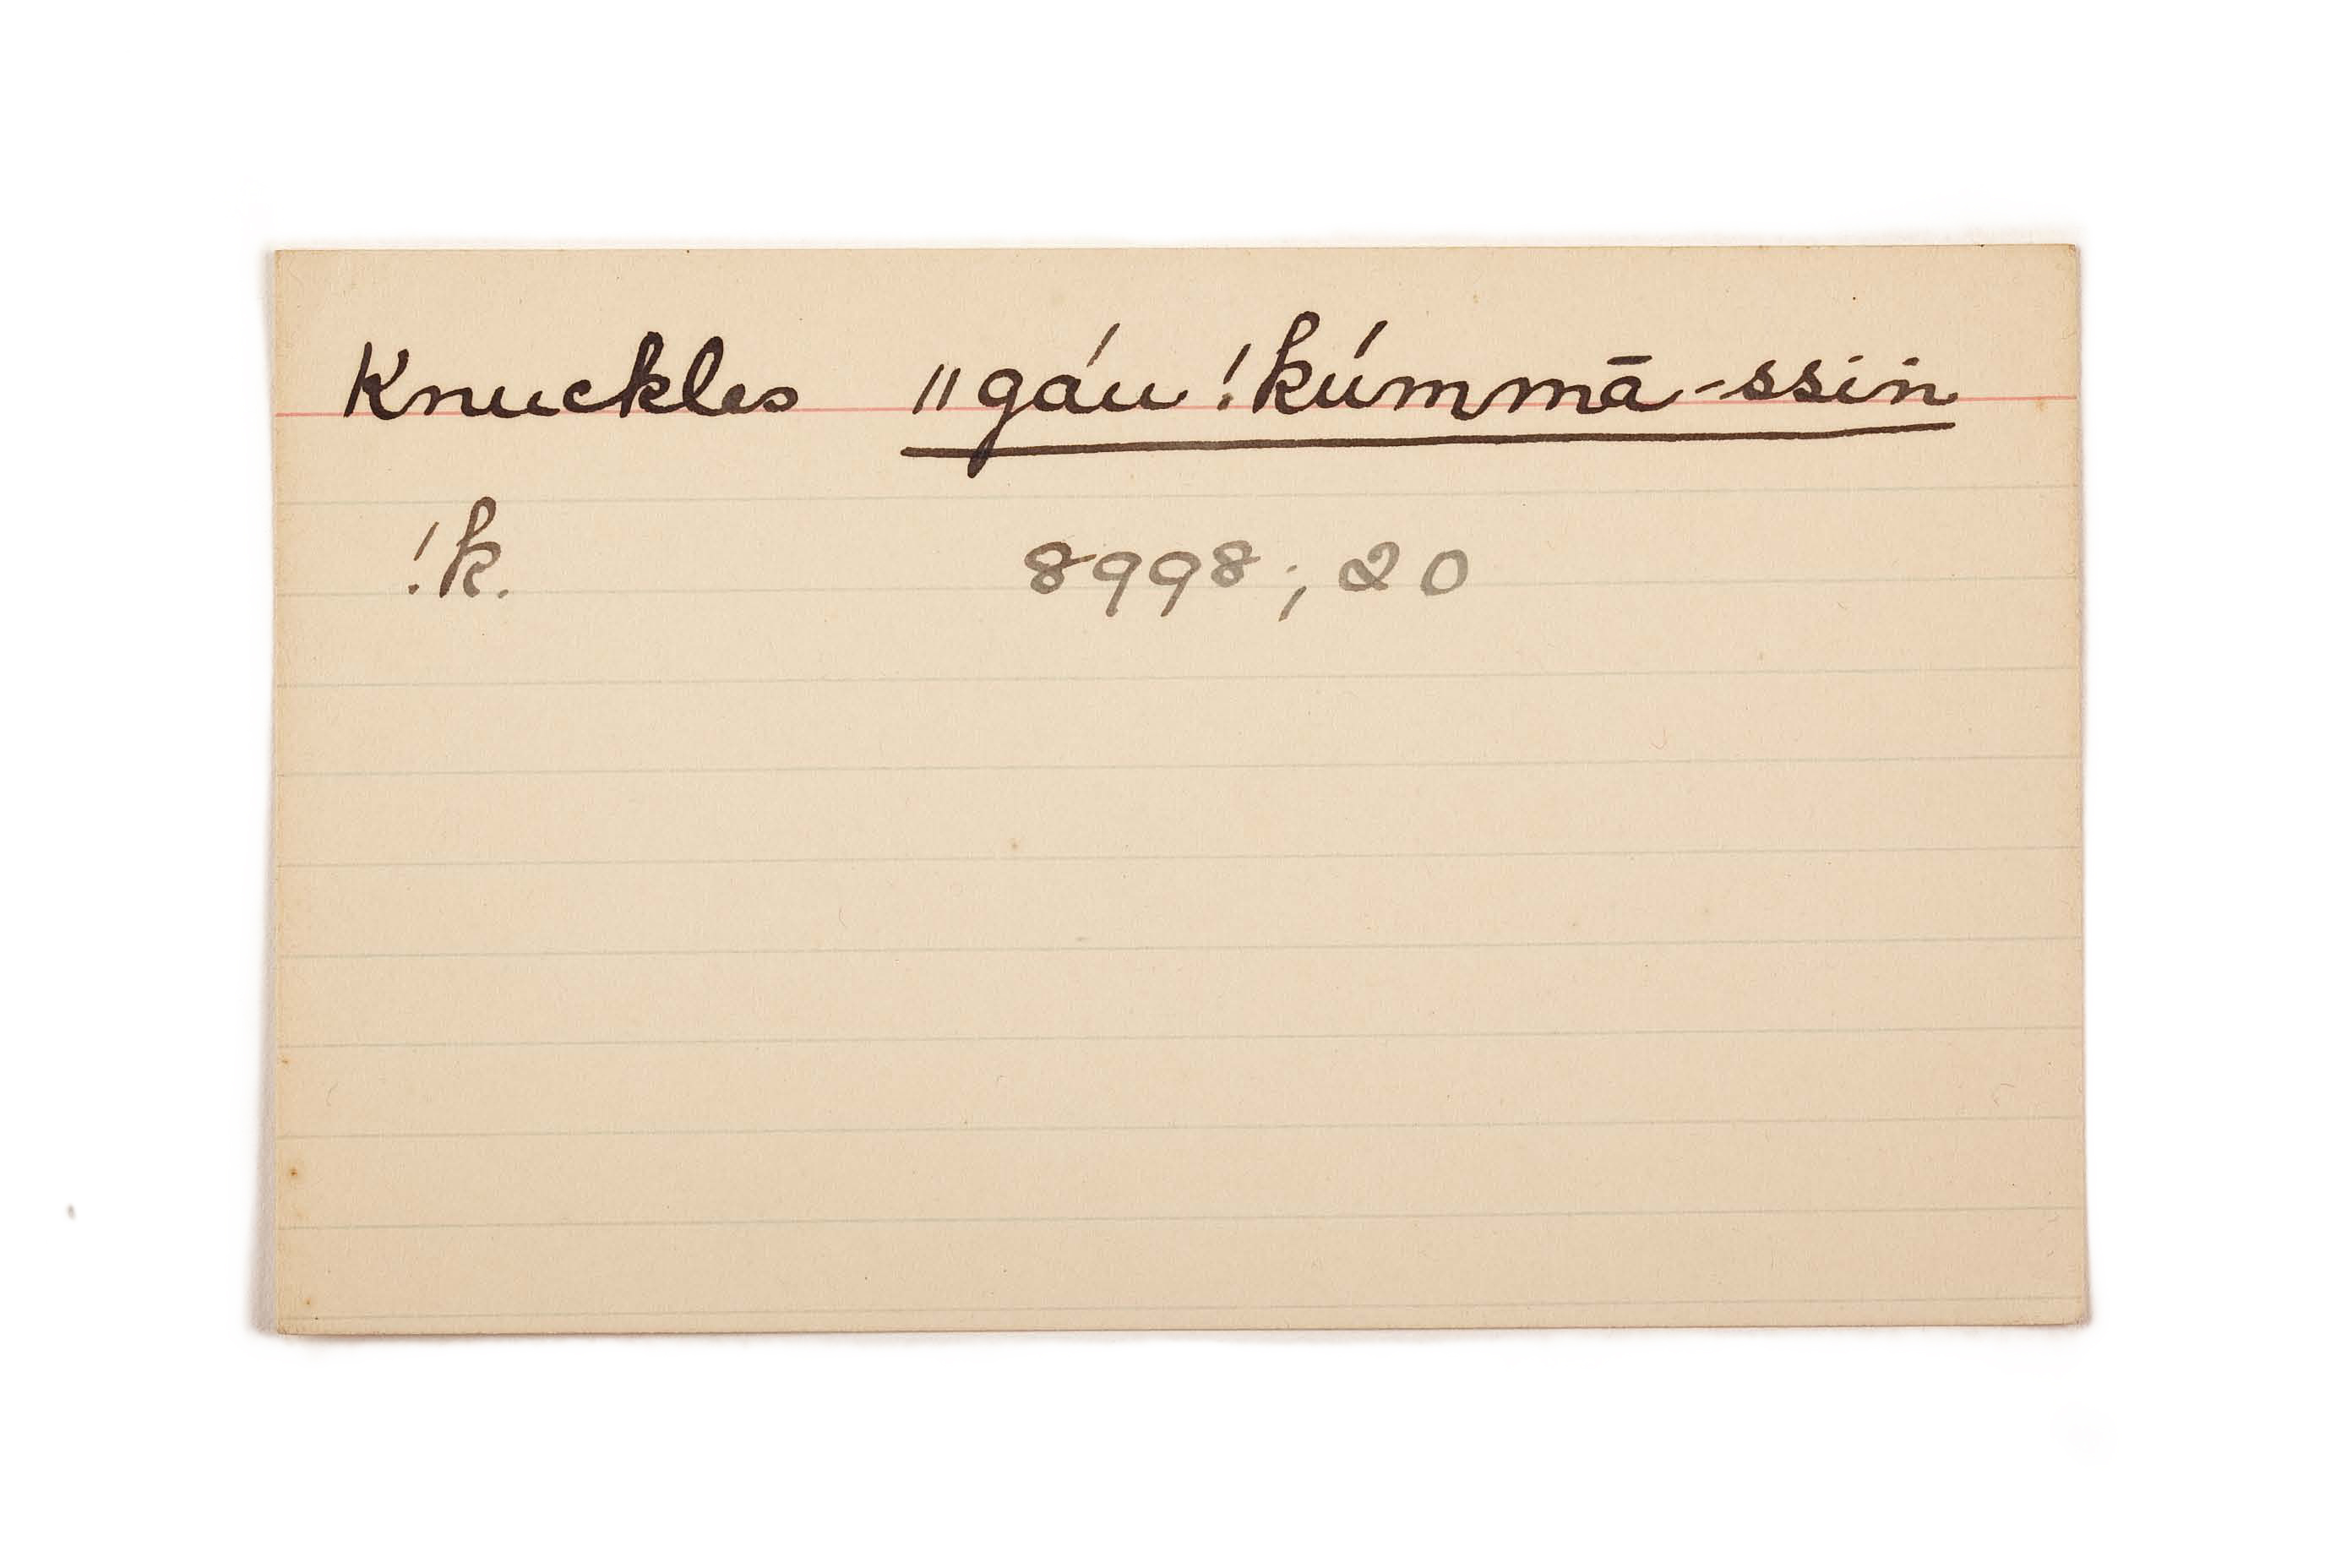 Knuckles ǁgáu !kúmmā-ssin
!k. 8998; 20